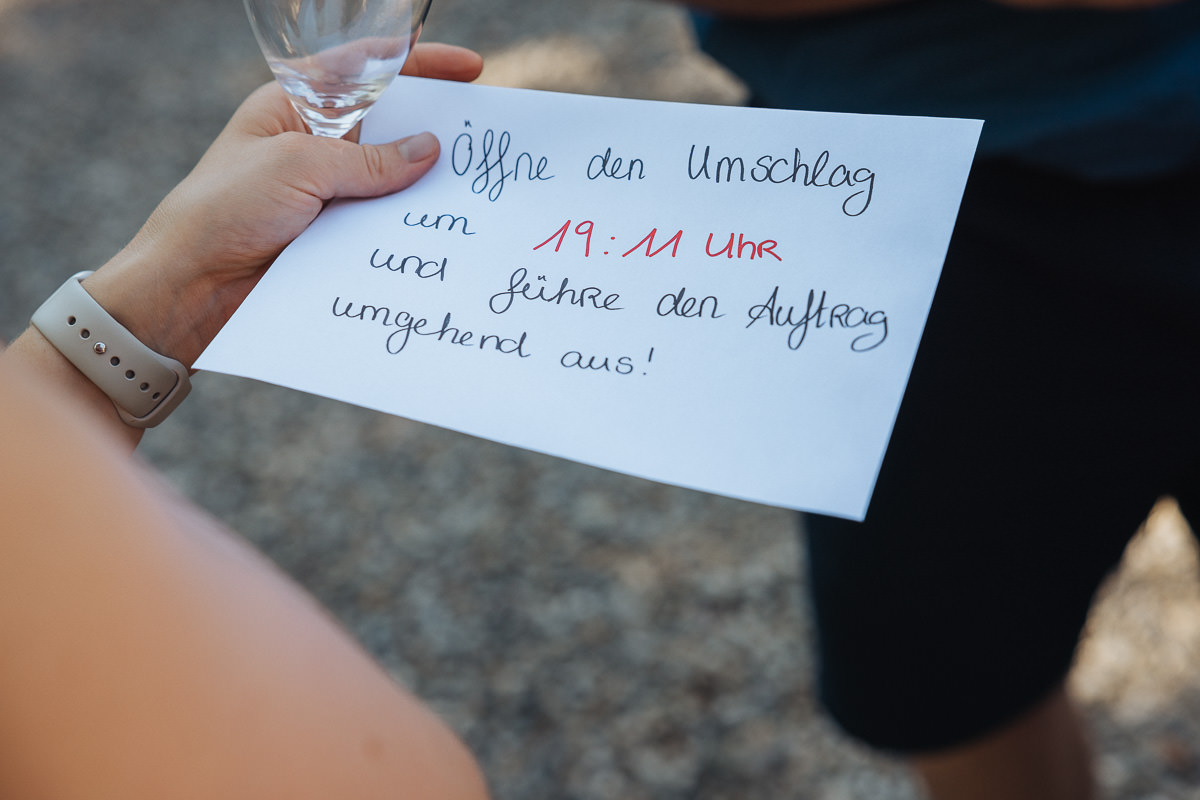 Öffne den Umschlag
um 19:11 Uhr
und führe den Auftrag
umgehend aus!